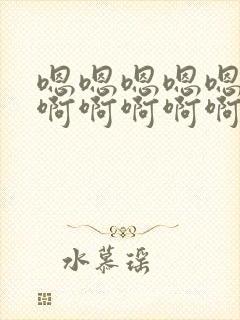 嗯嗯嗯嗯嗯
啊啊啊啊啊
水慕瑶